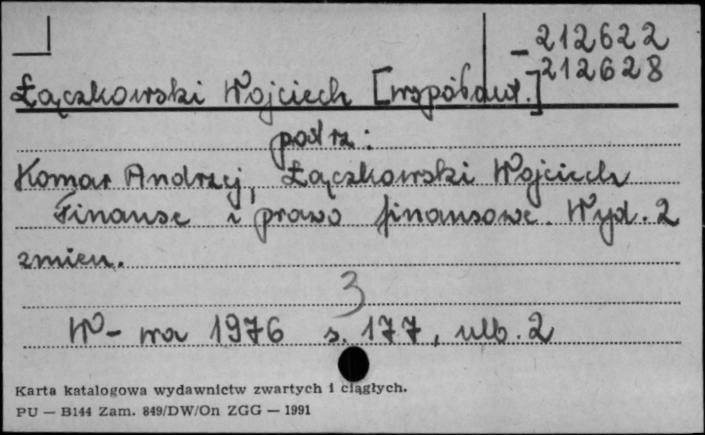 212622
Łączkowski Wojciech [współaut.] 212628
pod rz:
Komar Andrzej, Łączkowski Wojciech
Finanse i prawo finansowe. Wyd. 2
zmien.
3
W-wa 1976 s. 177, nlb. 2
Karta katalogowa wydawnictw zwartych i ciągłych.
PU — B144 Zam. 849/DW/On ZGG — 1991